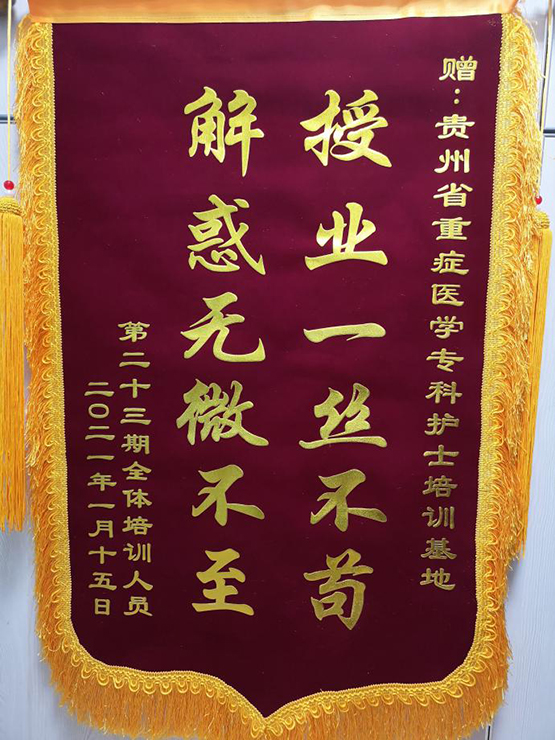 赠:贵州省重症医学专科护士培训基地
授业一丝不苟
解惑无微不至
第二十三期全体培训人员
二〇二一年一月十五日